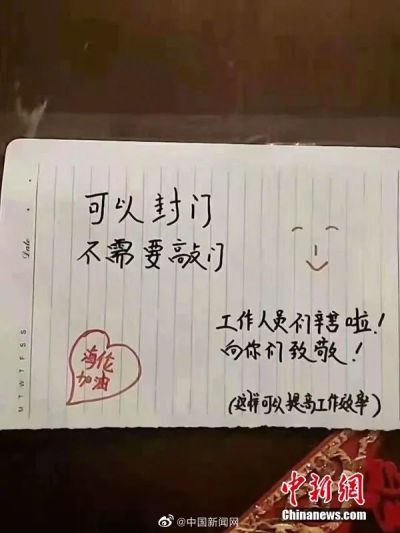 可以封门
不需要敲门
Date
工作人员们辛苦啦！
向你们致敬！
海伦
加油
(这样可以提高工作效率)
M T W T F S S
中新网
Chinanews.com
@中国新闻网